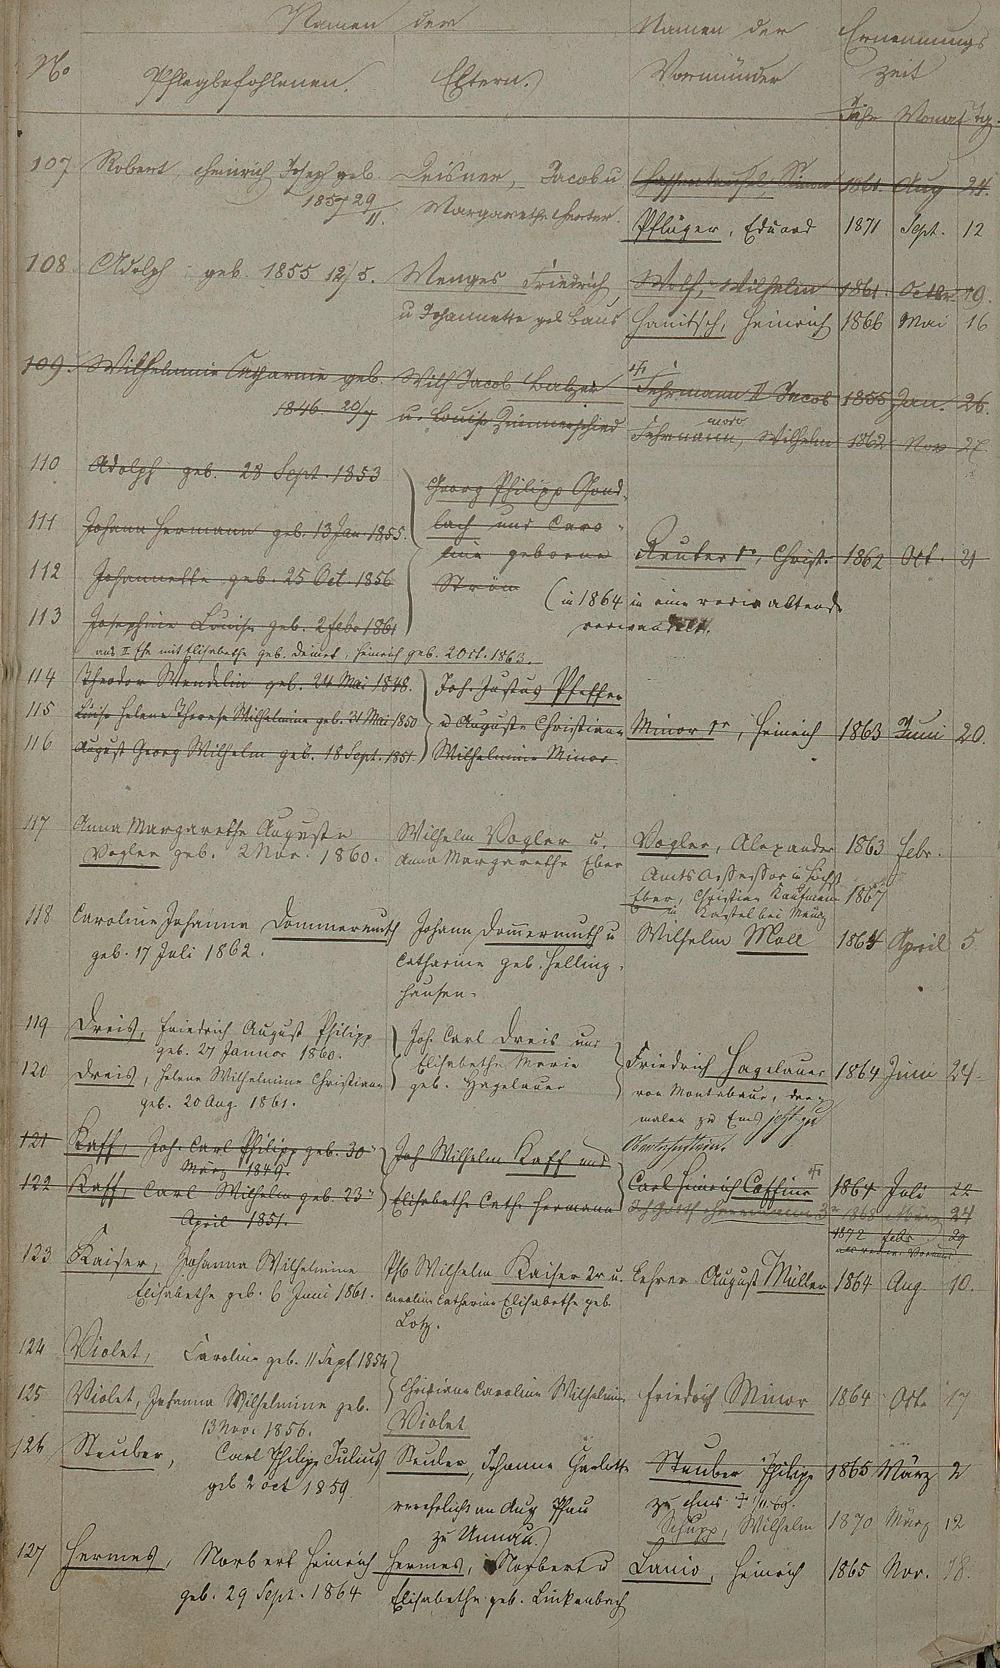 Namen der Namen der Ernennungs
No Pflegbefohlenen. Eltern. Vormünder zeit
Jahr Monat Tg.
107 Robert Heinrich Joseph geb. Deisner, Jacob u 1861. Aug 24.
1857 29/11. Margarethe
Pflüger, Eduard 1871 Sept. 12
108 Adolph geb. 1855 12/5. Menges Friedrich, Wolf, Wilhelm 1861. Octbr 19.
u Johannette geb Hanitsch, Heinrich 1866 Mai 16
109. Wilhelmine Catharine geb. Wilh Jacob Balzer Fuhrmann II Jacob 1855 Jan. 26.
1846 20/7 u. Louise Zimmerschied modo
Fuhrmann, Wilhelm 1862 Nov 27.
110 Adolph geb. 28 Sept. 1853 Georg Philipp Gond-
111 Johann Hermann geb. 13 Jan 1855. lach und Caro-
line geborne Reuter 1r, Christ. 1862 Oct. 21
112 Johannette geb. 25 Oct 1856 Strön
(in 1864 in eine
113 Josephine Louise geb. 2 Febr 1861 verwandelt.
aus II Ehe mit Elisabethe geb. Deinet, Heinrich geb. 2 Oct. 1863.
114 Theodor Wendelin geb. 24 Mai 1848. Joh. Justus Pfeffer
115 Luise Helene Therese Wilhelmine geb. 31 Mai 1850 u Auguste Christiane Minor 1r, Heinrich 1863 Juni 20.
116 August Georg Wilhelm geb. 18 Sept. 1851. Wilhelmine Minor
117 Anna Margarethe Auguste Wilhelm Vogler u. Vogler, Alexander 1863 Febr.
Vogler geb. 2 Nov. 1860. Anna Margarethe Eber Amts Assessor in Höchst
Eber, Christian Kaufmann 1867
in Kastel bei Mainz
118 Caroline Johanna Dommermuth Johann Dommermuth u Wilhelm Moll 1864 April 5
geb. 17 Juli 1862. Catharine geb. Helling-
hausen.
119 Dreis, Friedrich August Philipp Joh. Carl Dreis und
geb. 27 Januar 1860. Elisabethe Marie Friedrich Hagelauer 1864 Juni 24.
120 Dreis, Helene Wilhelmine Christiane geb. Hagelauer von Montabaur, der-
geb. 20 Aug 1861. malen zu Ems jetzt zu
121 Kaff, Joh. Carl Philipp geb. 30n Joh Wilhelm Kaff und
März 1849.
122 Kaff, Carl Wilhelm geb. 23n Elisabethe Cath. Hermann Carl Heinrich Coffine 1864 Juli 22
April 1851. 1868 März 24
1872 Febr 29
123 Kaiser, Johanna Wilhelmine Phil Wilhelm Kaiser 2r u. Lehrer August Müller 1864 Aug. 10.
Elisabethe geb. 6 Juni 1861. Caroline Catharine Elisabethe geb.
Lotz.
124 Violet, Caroline geb. 11 Sept 1854
125 Violet, Johanna Wilhelmine geb. Christiane Caroline Wilhelmine Friedrich Minor 1864 Oct. 17
13 Nov. 1856. Violet
126 Steuber, Carl Philipp Julius Steuber, Johanne Charlotte Steuber Philipp 1865 März 2
geb 2 Oct 1859 verehelicht an Aug Pfau zu Ems
zu Unnau. Schupp, Wilhelm 1870 März 12
127 Hermes, Norbert Heinrich Hermes, Norbert u Lanio, Heinrich 1865 Nov. 18.
geb. 29 Sept. 1864 Elisabethe geb. Linkenbach